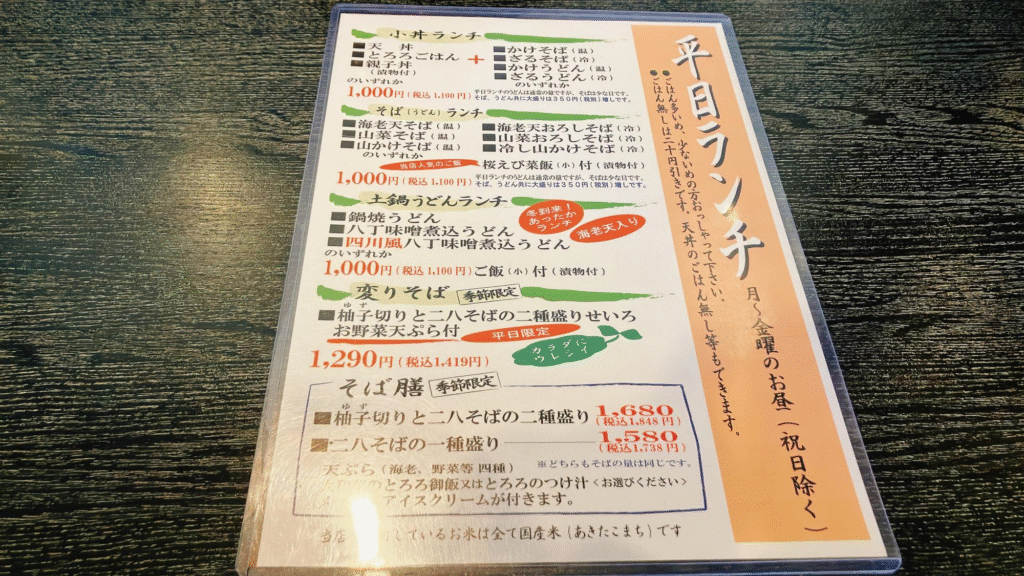 平日ランチ
月〜金曜のお昼（祝日除く）
●ごはん多いめ、少ないめの方おっしゃって下さい。
●ごはん無しは二十円引きです。天丼のごはん無し等もできます。
小丼ランチ
■天丼
■とろろごはん
■親子丼
（漬物付）
のいずれか
+
■かけそば（温）
■ざるそば（冷）
■かけうどん（温）
■ざるうどん（冷）
のいずれか
1,000円（税込1,100円）
平日ランチのうどんは通常の量ですが、そばは少な目です。
そば、うどん共に大盛りは350円（税別）増しです。
そば（うどん）ランチ
■海老天そば（温）
■山菜そば（温）
■山かけそば（温）
■海老天おろしそば（冷）
■山菜おろしそば（冷）
■冷し山かけそば（冷）
のいずれか
当店人気のご飯
桜えび菜飯（小）付（漬物付）
1,000円（税込1,100円）
平日ランチのうどんは通常の量ですが、そばは少な目です。
そば、うどん共に大盛りは350円（税別）増しです。
土鍋うどんランチ
■鍋焼うどん
■八丁味噌煮込うどん
■四川風八丁味噌煮込うどん
のいずれか
冬到来！
あったか
ランチ
海老天入り
1,000円（税込1,100円）ご飯（小）付（漬物付）
変りそば 季節限定
ゆず
■柚子切りと二八そばの二種盛りせいろ
お野菜天ぷら付
平日限定
カラダに
ウレシイ
1,290円（税込1,419円）
そば膳 季節限定
ゆず
柚子切りと二八そばの二種盛り 1,680
（税込1,848円）
二八そばの一種盛り 1,580
（税込1,738円）
天ぷら（海老、野菜等 四種） ※どちらもそばの量は同じです。
とろろ御飯又はとろろのつけ汁＜お選びください＞
アイスクリームが付きます。
当店 しているお米は全て国産米（あきたこまち）です